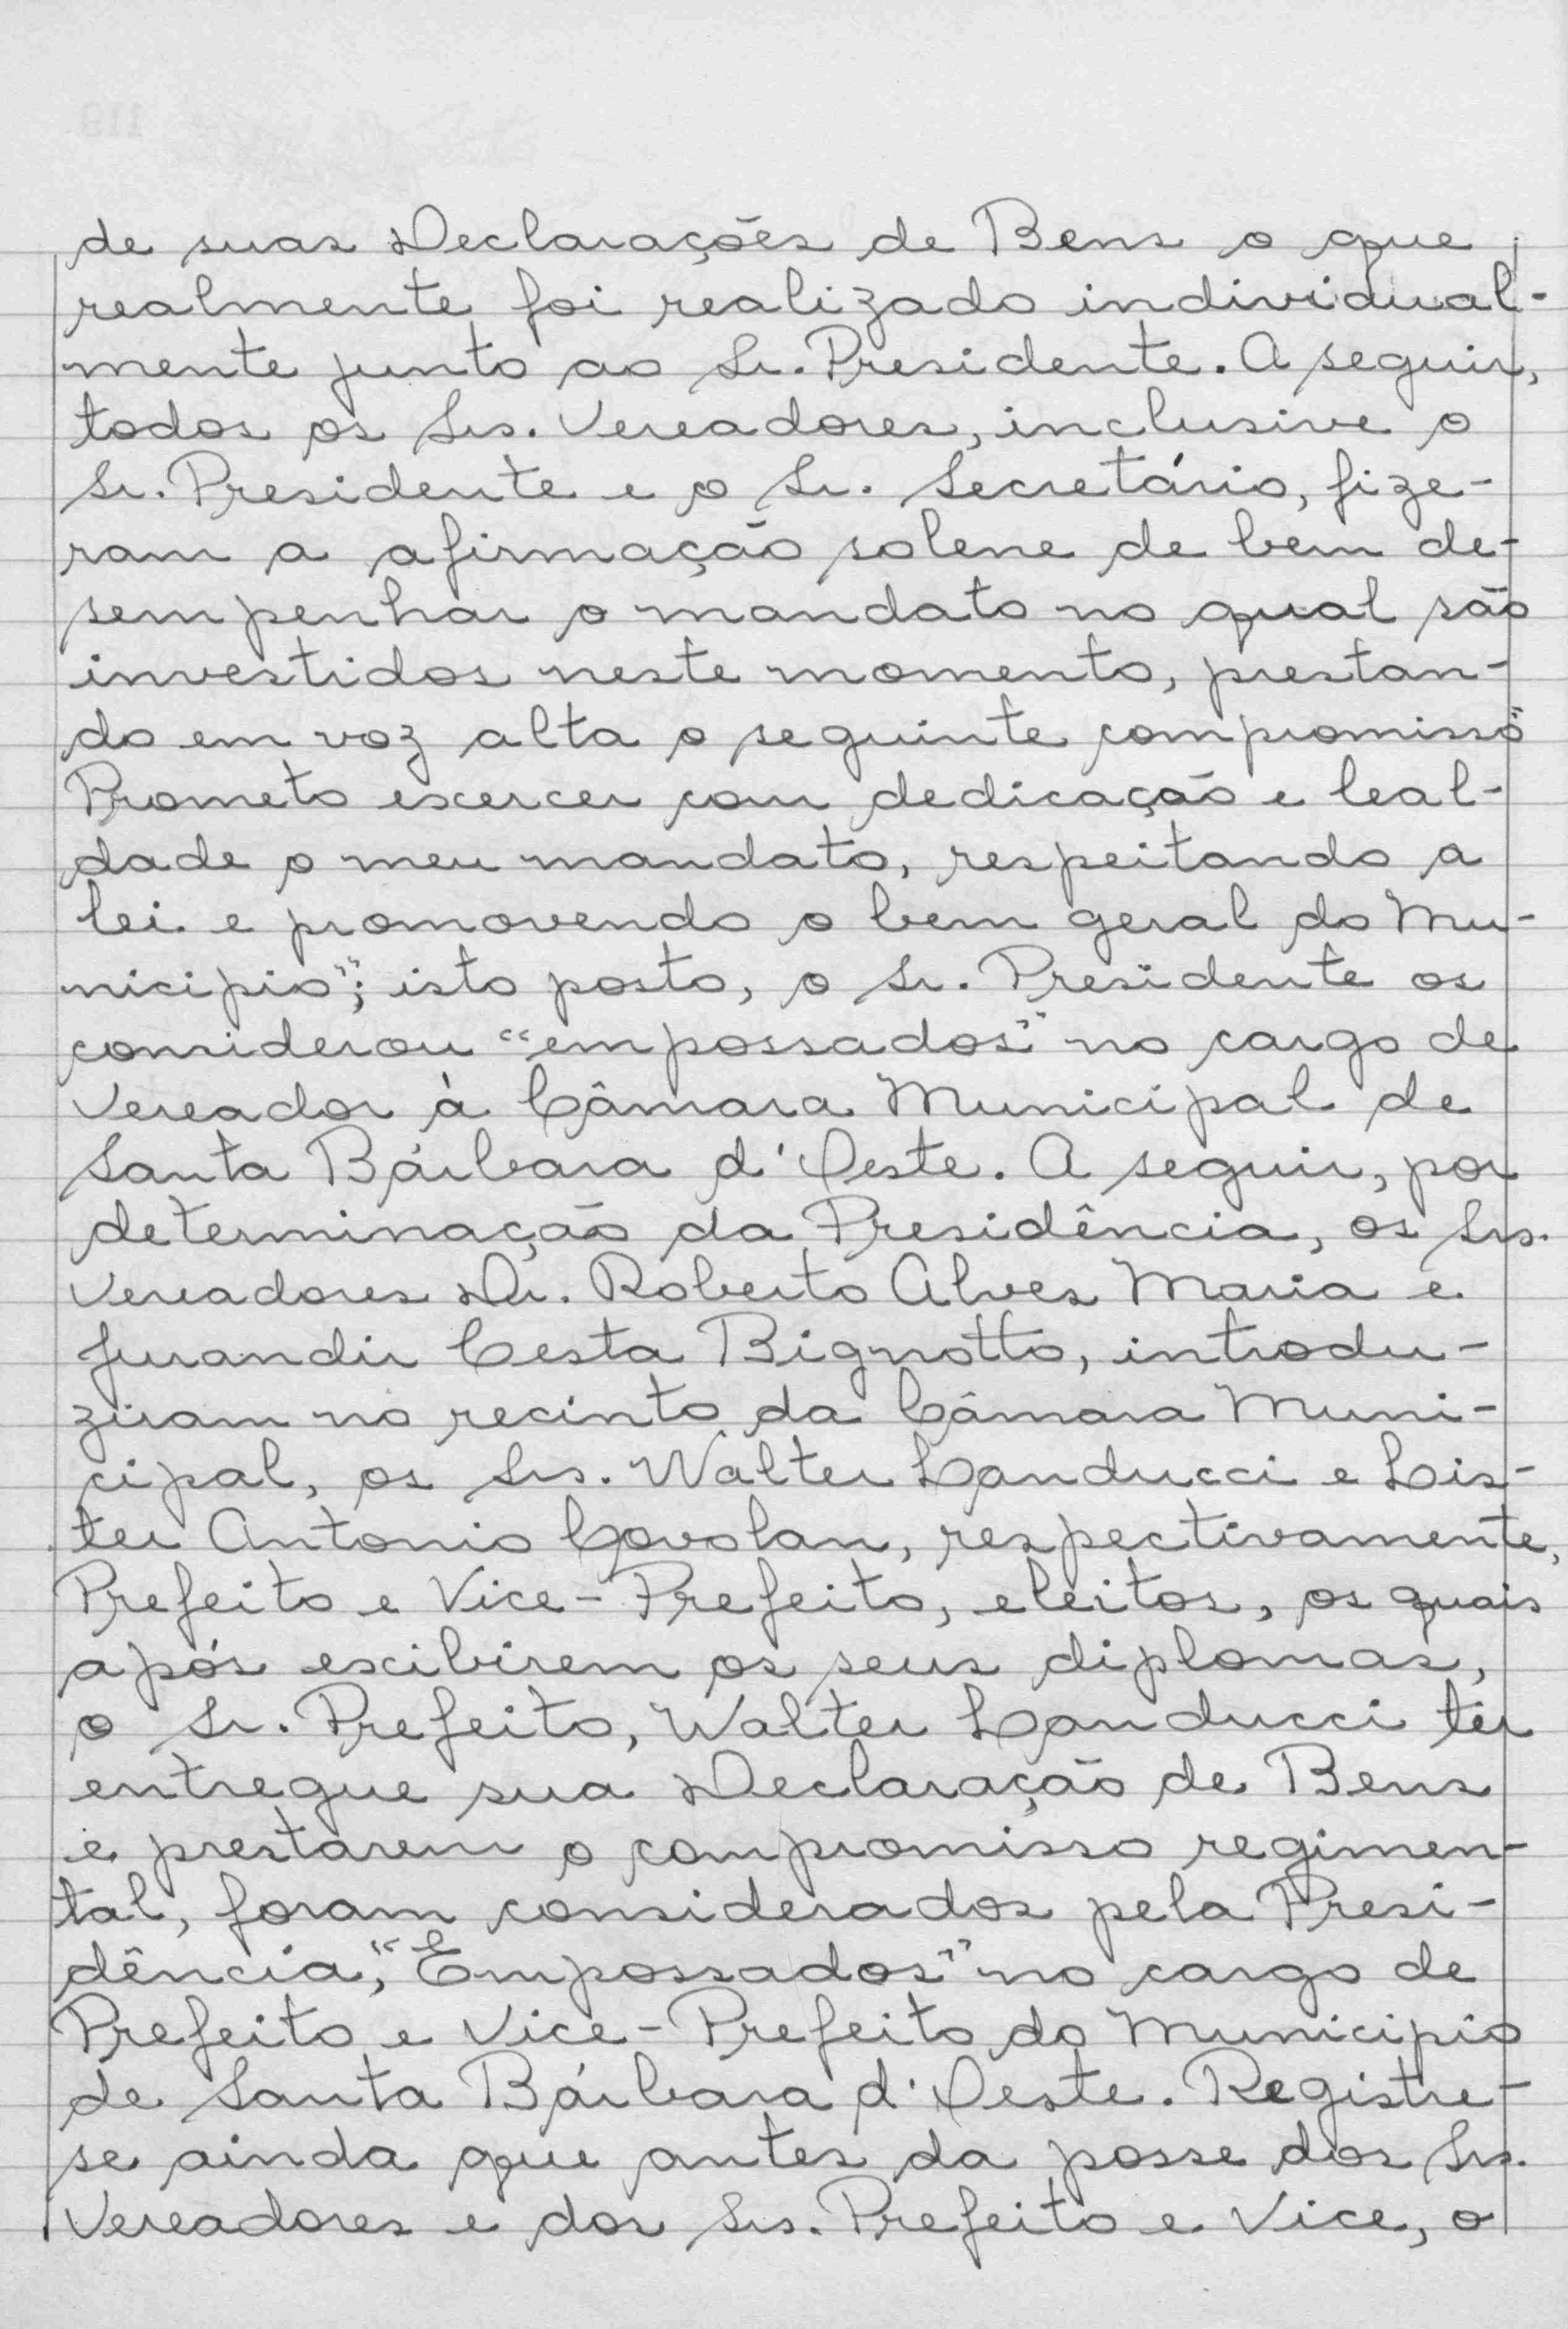 de suas Declarações de Bens o que
realmente foi realizado individual-
mente junto ao Sr. Presidente. A seguir,
todos os Srs. Vereadores, inclusive o
Sr. Presidente e o Sr. Secretário, fize-
ram a afirmação solene de bem de-
sempenhar o mandato no qual são
investidos neste momento, prestan-
do em voz alta o seguinte compromisso"
Prometo exercer com dedicação e leal-
dade o meu mandato, respeitando a
lei e promovendo o bem geral do Mu-
nicipio"; isto posto, o Sr. Presidente os
considerou "empossados" no cargo de
Vereador à Câmara Municipal de
Santa Bárbara d'Oeste. A seguir, por
determinação da Presidência, os Srs.
Vereadores Dr. Roberto Alves Maria e
Jurandir Cesta Bignotto, introdu-
ziram no recinto da Câmara Muni-
cipal, os Srs. Walter Landucci e Lis-
ter Antonio Covolan, respectivamente,
Prefeito e Vice-Prefeito, eleitos, os quais
após exibirem os seus diplomas,
o Sr. Prefeito, Walter Landucci ter
entregue sua Declaração de Bens
e prestarem o compromisso regimen-
tal, foram considerados pela Presi-
dência, "Empossados" no cargo de
Prefeito e Vice-Prefeito do Municipio
de Santa Bárbara d'Oeste. Registre-
se ainda que antes da posse dos Srs.
Vereadores e dos Srs. Prefeito e Vice, o